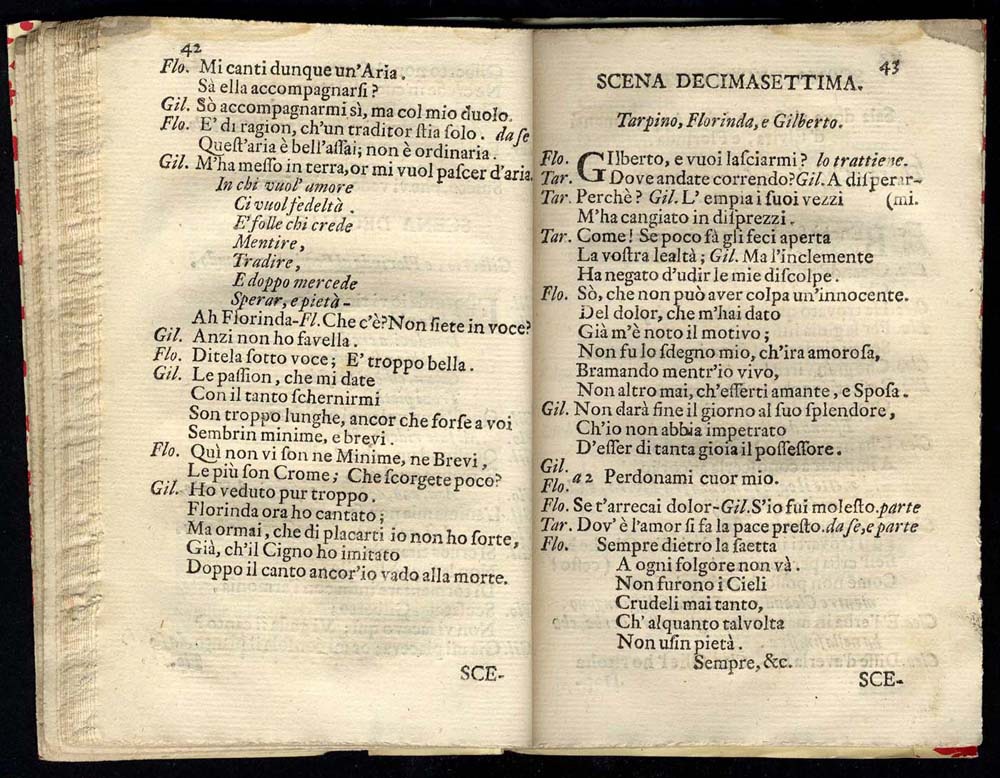 42
Flo. Mi canti dunque un'Aria.
Sà ella accompagnarsi?
Gil. Sò accompagnarmi sì, ma col mio duolo.
Flo. E' di ragion, ch'un traditor stia solo. da se
Quest'aria è bell'assai; non è ordinaria.
Gil. M'ha messo in terra, or mi vuol pascer d'aria.
In chi vuol' amore
Ci vuol fedeltà.
E' folle chi crede
Mentire,
Tradire,
E doppo mercede
Sperar, e pietà -
Ah Florinda-Fl. Che c'è? Non siete in voce?
Gil. Anzi non ho favella.
Flo. Ditela sotto voce; E' troppo bella.
Gil. Le passion, che mi date
Con il tanto schernirmi
Son troppo lunghe, ancor che forse a voi
Sembrin minime, e brevi.
Flo. Quì non vi son ne Minime, ne Brevi,
Le più son Crome; Che scorgete poco?
Gil. Ho veduto pur troppo.
Florinda ora ho cantato;
Ma ormai, che di placarti io non ho sorte,
Già, ch'il Cigno ho imitato
Doppo il canto ancor'io vado alla morte.
SCE-
43
SCENA DECIMASETTIMA.
Tarpino, Florinda, e Gilberto.
Flo. GIlberto, e vuoi lasciarmi? lo trattiene.
Tar. Dove andate correndo? Gil. A disperar-
Tar. Perchè? Gil. L' empia i suoi vezzi (mi.
M'ha cangiato in disprezzi.
Tar. Come! Se poco fà gli feci aperta
La vostra lealtà; Gil. Ma l'inclemente
Ha negato d'udir le mie discolpe.
Flo. Sò, che non può aver colpa un'innocente.
Del dolor, che m'hai dato
Già m'è noto il motivo;
Non fu lo sdegno mio, ch'ira amorosa,
Bramando mentr'io vivo,
Non altro mai, ch'esserti amante, e Sposa.
Gil. Non darà fine il giorno al suo splendore,
Ch'io non abbia impetrato
D'esser di tanta gioia il possessore.
Gil.
Flo. a 2 Perdonami cuor mio.
Flo. Se t'arrecai dolor-Gil. S'io fui molesto. parte
Tar. Dov' è l'amor si fa la pace presto. da se, e parte
Flo. Sempre dietro la saetta
A ogni folgore non và.
Non furono i Cieli
Crudeli mai tanto,
Ch' alquanto talvolta
Non usin pietà.
Sempre, &c.
SCE-